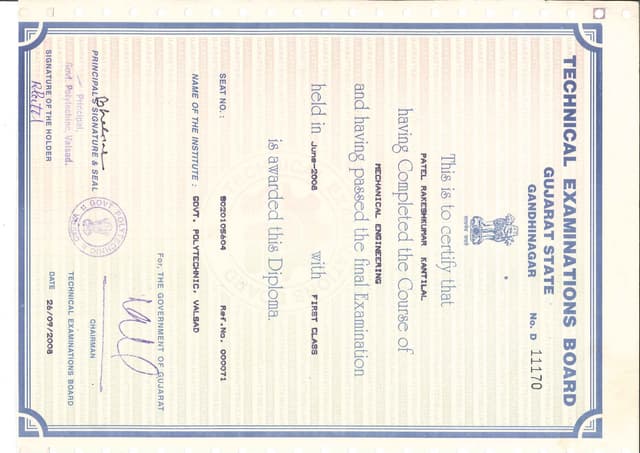 TECHNICAL EXAMINATIONS BOARD
GUJARAT STATE
GANDHINAGAR
No. D 11170
This is to certify that
PATEL RAKESHKUMAR KANTILAL
having Completed the Course of
MECHANICAL ENGINEERING
and having passed the final Examination
held in June-2008 with FIRST CLASS
is awarded this Diploma.
SEAT NO. : S020105604 Ref.No. 000071
NAME OF THE INSTITUTE : GOVT. POLYTECHNIC, VALSAD
For, THE GOVERNMENT OF GUJARAT
PRINCIPAL'S SIGNATURE & SEAL
Principal,
Govt. Polytechnic, Valsad.
CHAIRMAN
TECHNICAL EXAMINATIONS BOARD
SIGNATURE OF THE HOLDER
DATE 26/09/2008